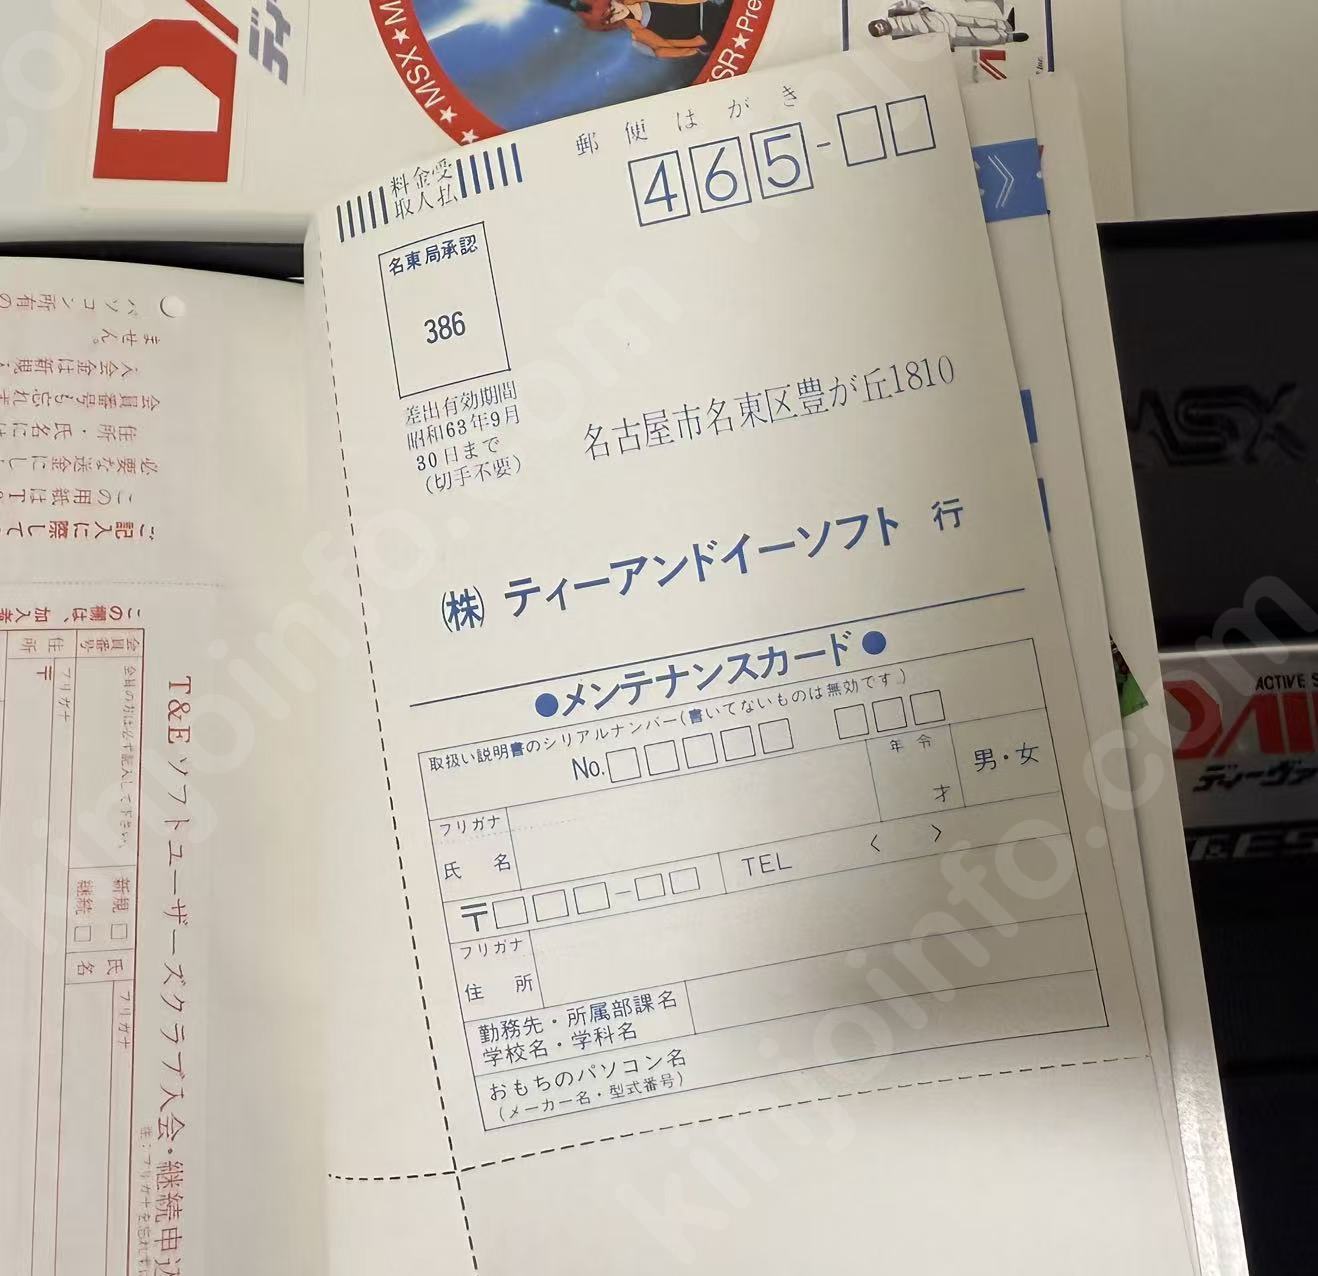 MSX★M
SR★Pre
郵便はがき
料金受
取人払
465-
名東局承認
386
差出有効期間
昭和63年9月
30日まで
(切手不要)
名古屋市名東区豊が丘1810
(株)ティーアンドイーソフト 行
●メンテナンスカード●
取扱い説明書のシリアルナンバー(書いてないものは無効です。)
No.
年令
才
男・女
フリガナ
氏名
〒 - TEL 〈 〉
フリガナ
住所
勤務先・所属部課名
学校名・学科名
おもちのパソコン名
(メーカー名・型式番号)
ご記入に際して
この用紙はT
必要な送金にし
住所・氏名には
会員番号も忘れ
入会金は新規
ません。
パソコン所有の
この欄は、加入者
T&Eソフトユーザーズクラブ入会・継続申込
注:フリガナを忘れずに
会員番号
会員の方は必ず記入して下さい。
新規 □
継続 □
住所
フリガナ
〒
氏名
フリガナ
MSX
ACTIVE S
ディーヴァ
T&ES
kinjoinfo.com